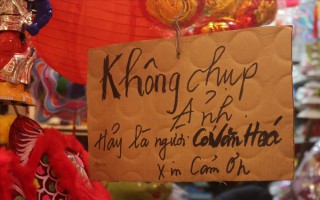 Không chụp
Ảnh.
Hãy là người Có Văn Hoá
Xin Cảm Ơn